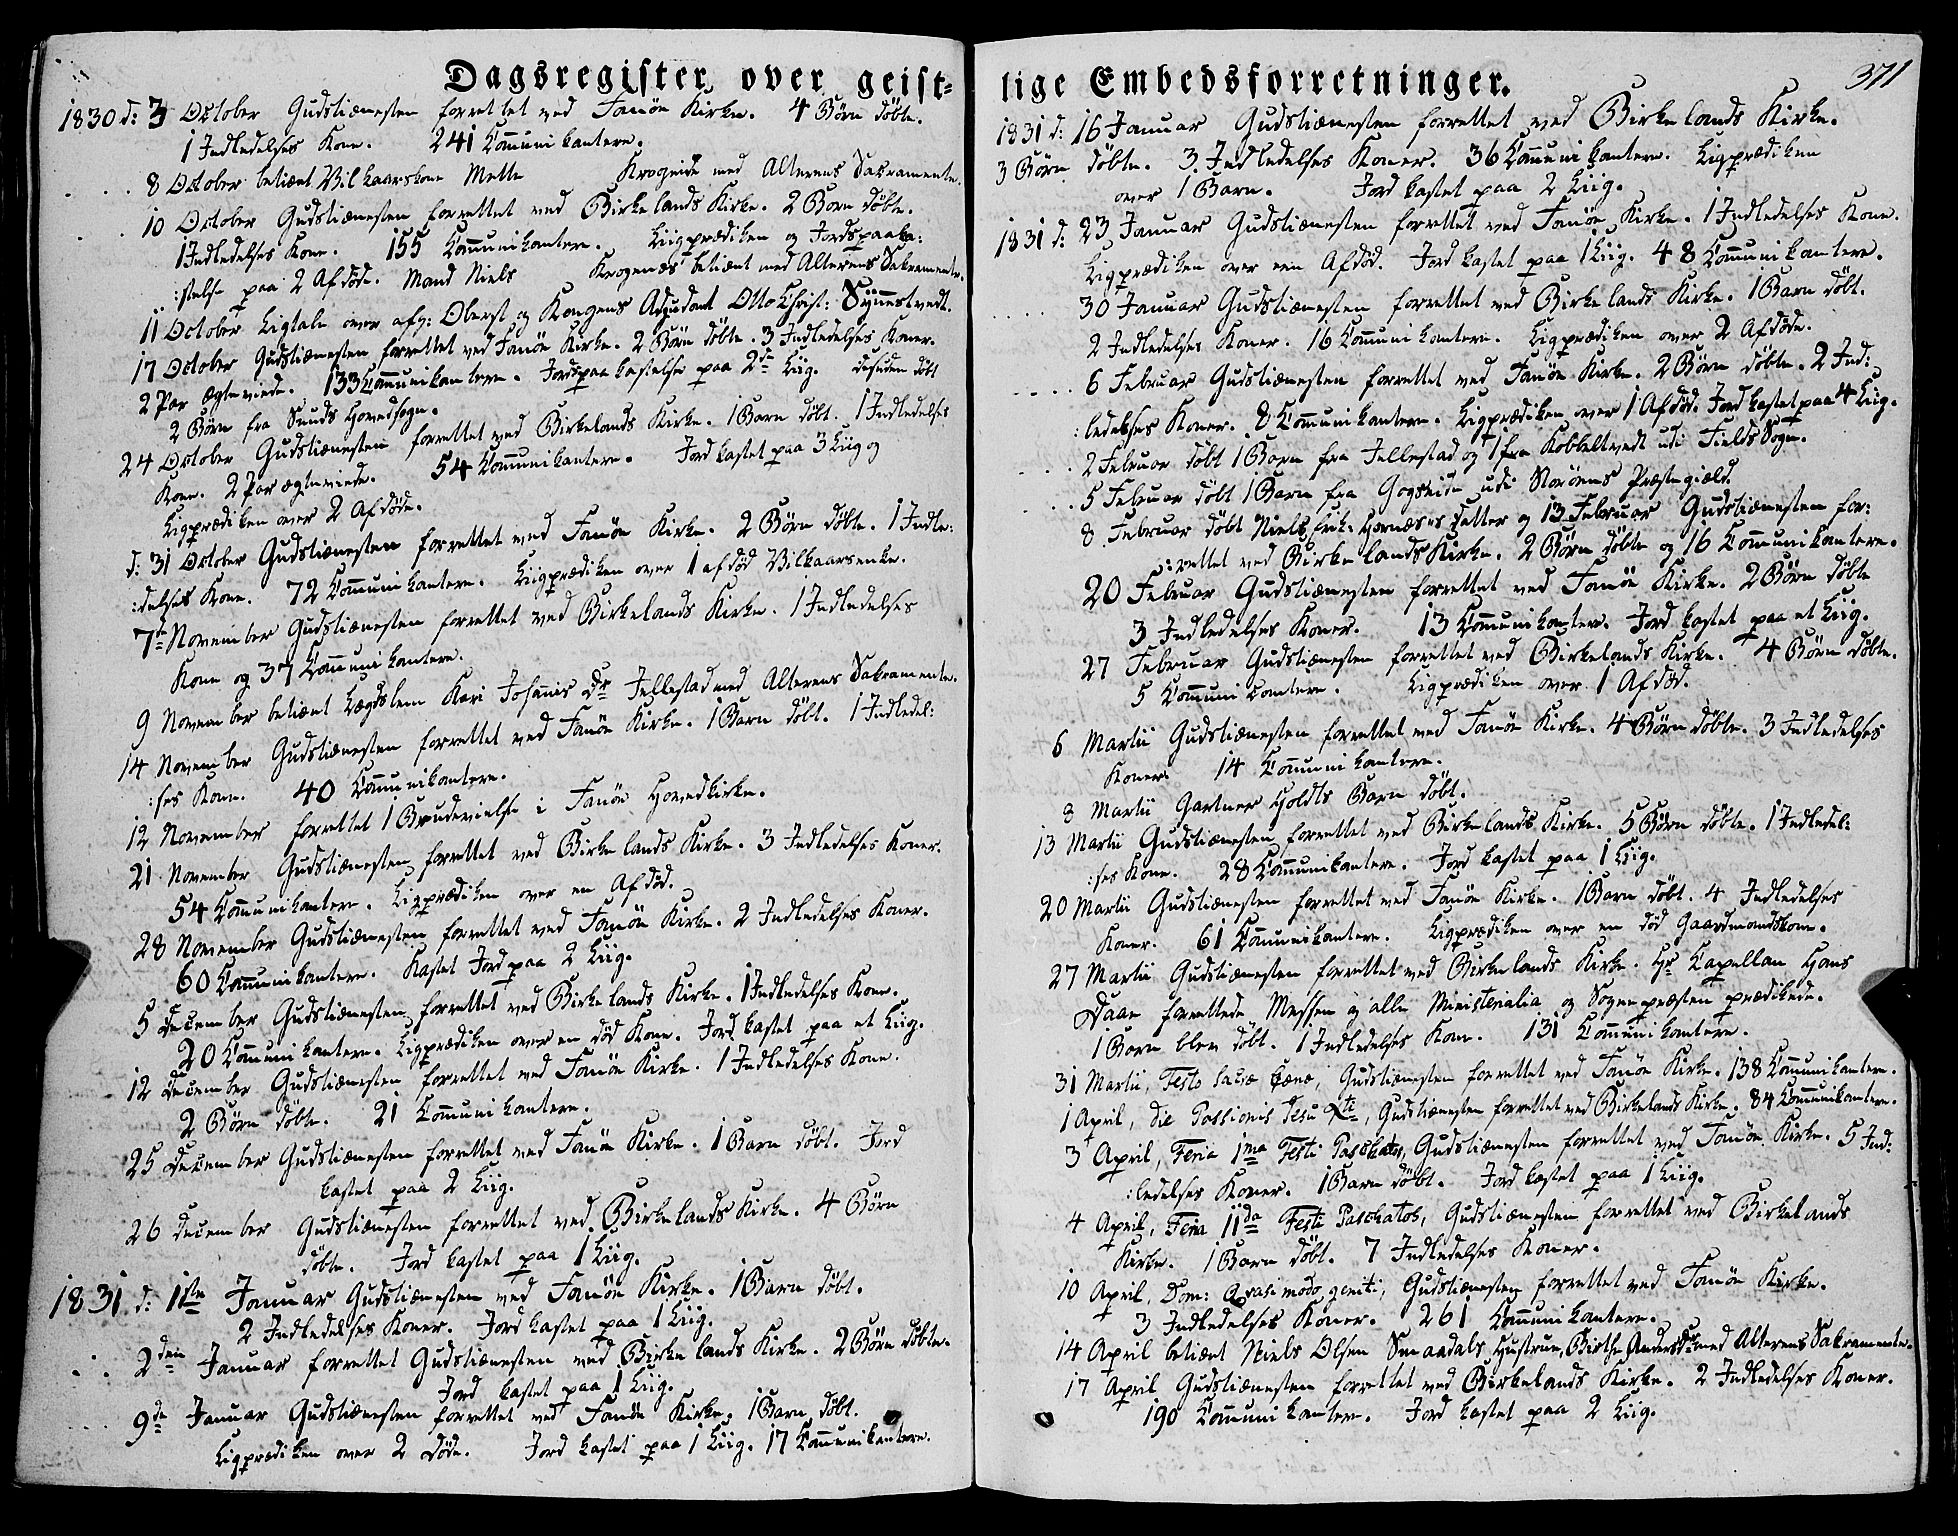 Dagsregister over geist=
1830 d: 3 October Gudstiænesten forrettet ved Fanöe Kirke. 4 Børn døbte.
1 Indledelses Kone. 241 Communikantere.
8 October betiænt Vilkaarskone Mette Krogeide med Alterens Sakramente.
10 October Gudstiænesten forrettet ved Birkelands Kirke. 2 Børn døbte.
1 Indledelses Kone. 155 Communikantere. Liigprædiken og Jordspaaka:
:stelse paa 2 Afdøde. Mand Niels Krogenæs betiænt med Alterens Sakramente.
11 October Ligtale over afg: Oberst og Kongens Adjudant Otto Christ: Synnestvedt.
17 October Gudstiænesten forrettet ved Fanöe Kirke. 2 Börn døbte. 3 Indledelses Koner.
2 Par Ægteviede. 133 Communikantere. Jordspaakastelse paa 2de Liig. desuden døbt
2 Börn fra Sunds Hovedsogn.
24 October Gudstiænesten forrettet ved Birkelands Kirke. 1 Barn døbt. 1 Indledelses
Kone. 2 Par ægteviede. 54 Communikantere. Jord kastet paa 3 Liig og
Ligprædiken over 2 Afdøde.
d: 31 October Gudstiænesten forrettet ved Fanöe Kirke. 2 Börn døbte. 1 Indle:
:delses Kone. 72 Communikantere. Liigprædiken over 1 afdød Vilkaarsenke.
7de November Gudstiænesten forrettet ved Birkelands Kirke. 1 Indledelses
Kone og 37 Communikantere.
9 November betiænt Lægdslem Kari Johanis Dr Jellestad med Alterens Sakramente.
14 November Gudstiænesten forrettet ved Fanöe Kirke. 1 Barn døbt. 1 Indledel:
:ses Kone. 40 Communikantere.
12 November forrettet 1 Brudevielse i Fanöe Hovedkirke.
21 November Gudstiænesten forrettet ved Birkelands Kirke. 3 Indledelses Koner.
54 Communikantere. Ligprædiken over en Afdød.
28 November Gudstiænesten forrettet ved Fanöe Kirke. 2 Indledelses Koner.
60 Communikantere. Kastet Jord paa 2 Liig.
5 December Gudstiænesten forrettet ved Birkelands Kirke. 1 Indledelses Kone.
20 Communikantere. Ligprædiken over en død Kone. Jord kastet paa et Liig.
12 December Gudstiænesten forrettet ved Fanöe Kirke. 1 Indledelses Kone.
2 Börn døbte. 21 Communikantere.
25 December Gudstiænesten forrettet ved Fanöe Kirke. 1 Barn døbt. Jord
kastet paa 2 Liig.
26 December Gudstiænesten forrettet ved Birkelands Kirke. 4 Börn
døbte. Jord kastet paa 1 Liig.
1831 d: 1ste Januar Gudstiænesten ved Fanöe Kirke. 1 Barn døbt.
2 Indledelses Koner. Jord kastet paa 1 Liig.
2den Januar forrettet Gudstiænesten ved Birkelands Kirke. 2 Börn døbte.
Jord kastet paa 1 Liig.
9de Januar Gudstiænesten forrettet ved Fanöe Kirke. 1 Barn døbt.
Ligprædiken over 2 døde. Jord kastet paa 1 Liig. 17 Communikantere.
lige Embedsforretninger. 371
1831 d: 16 Januar Gudstiænesten forrettet ved Birkelands Kirke.
3 Börn døbte. 3 Indledelses Koner. 36 Communikantere. Ligprædiken
over 1 Barn. Jord kastet paa 2 Liig.
1831 d: 23 Januar Gudstiænesten forrettet ved Fanöe Kirke. 1 Indledelses Kone.
Ligprædiken over een Afdød. Jord kastet paa 1 Liig. 48 Communikantere.
30 Januar Gudstiænesten forrettet ved Birkelands Kirke. 1 Barn døbt.
2 Indledelses Koner. 16 Communikantere. Ligprædiken over 2 Afdøde.
6 Februar Gudstiænesten forrettet ved Fanöe Kirke. 2 Börn døbte. 2 Ind:
:ledelses Koner. 8 Communikantere. Ligprædiken over 1 Afdød. Jord kastet paa 4 Liig.
2 Februar døbt 1 Barn fra Jellestad og 1 fra Kobbeltvedt udi Fields Sogn.
5 Februar døbt 1 Barn fra udi Storöens Præstegield.
8 Februar døbt Niels Erik: Hornæs's Datter og 13 Februar Gudstiænesten for:
:rettet ved Birkelands Kirke. 2 Börn døbte og 16 Communikantere.
20 Februar Gudstiænesten forrettet ved Fanöe Kirke. 2 Börn døbte
3 Indledelses Koner. 13 Communikantere. Jord kastet paa et Liig.
27 Februar Gudstiænesten forrettet ved Birkelands Kirke. 4 Börn døbte.
5 Communicantere. Ligprædiken over 1 Afdød.
6 Martii Gudstiænesten forrettet ved Fanöe Kirke. 4 Börn døbte. 3 Indledelses
Koner. 14 Communikantere.
8 Martii Gartner Holdts Barn døbt.
13 Martii Gudstiænesten forrettet ved Birkelands Kirke. 5 Börn døbte. 1 Indledel:
:ses Kone. 28 Communikantere. Jord kastet paa 1 Liig.
20 Martii Gudstiænesten forrettet ved Fanöe Kirke. 1 Barn døbt. 4 Indledelses
Koner. 61 Communikantere. Ligprædiken over en død Gaardmandskone.
27 Martii Gudstiænesten forrettet ved Birkelands Kirke. Hr Capellan Hans
Daae forrettede Messen og alle Ministerialia og Sognepræsten prædikede.
1 Barn blev døbt. 1 Indledelses Kone. 131 Communikantere.
31 Martii, Festo Sacræ Cænæ, Gudstiænesten forrettet ved Fanöe Kirke. 138 Communikantere.
1 April, Die Passionis Jesu Xti, Gudstiænesten forrettet ved Birkelands Kirke. 84 Communikantere.
3 April, Feria 1ma Festi Paschatos, Gudstiænesten forrettet ved Fanöe Kirke. 5 Ind:
:ledelses Koner. 1 Barn døbt. Jord kastet paa 1 Liig.
4 April, Feria IIda Festi Paschatos, Gudstiænesten forrettet ved Birkelands
Kirke. 1 Barn døbt. 7 Indledelses Koner.
10 April, Dom: Qvasimodo geniti, Gudstiænesten forrettet ved Fanöe Kirke.
3 Indledelses Koner. 261 Communikantere.
14 April betiænt Niels Olsen Smaadals Hustrue, Birthe Anders Dr med Alterens Sakramente.
17 April Gudstiænesten forrettet ved Birkelands Kirke. 2 Indledelses Koner.
190 Communikantere. Jord kastet paa 2 Liig.